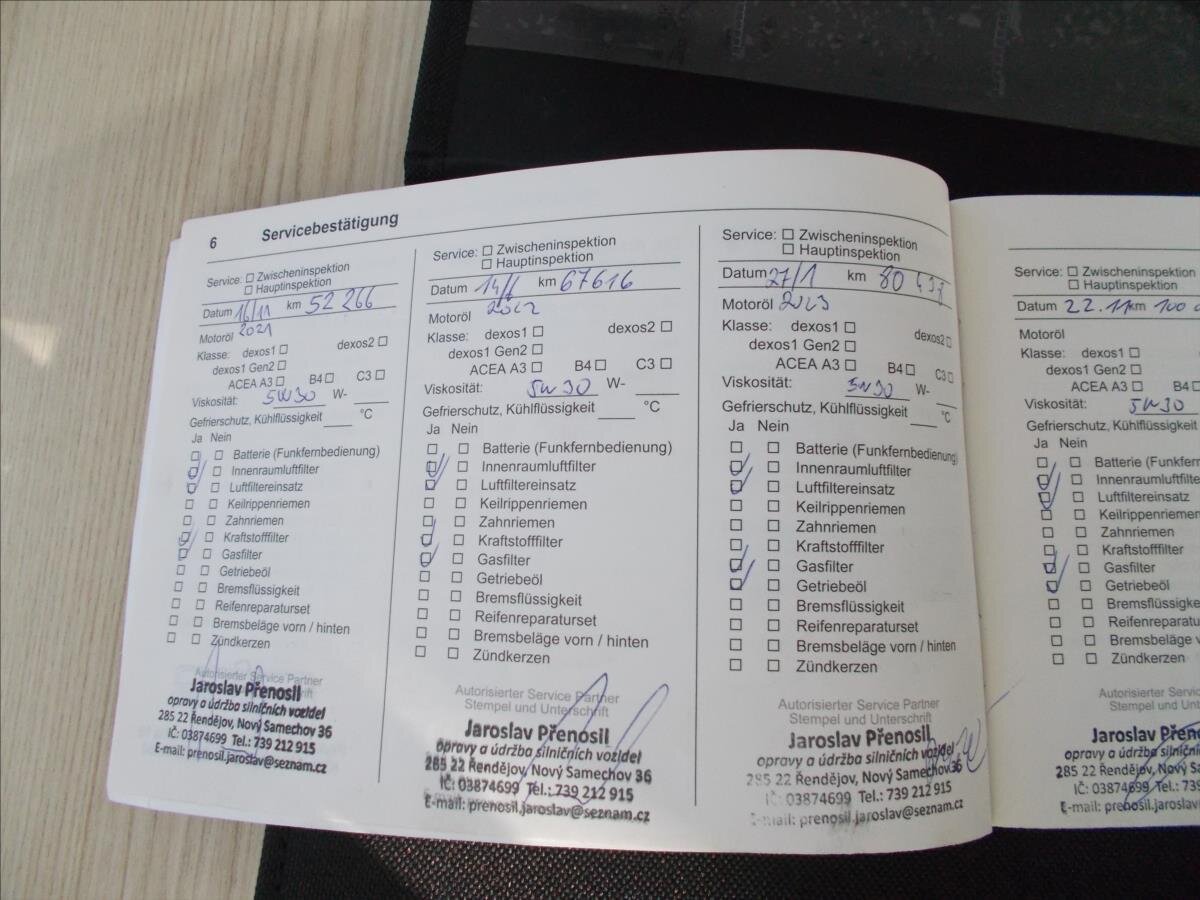 6 Servicebestätigung
Service: Zwischeninspektion
Hauptinspektion
Datum 16/11 km 52 266
Motoröl 2021
Klasse: dexos1 dexos2
dexos1 Gen2
ACEA A3 B4 C3
Viskosität: 5W30 W-
Gefrierschutz, Kühlflüssigkeit °C
Ja Nein
Batterie (Funkfernbedienung)
Innenraumluftfilter
Luftfiltereinsatz
Keilrippenriemen
Zahnriemen
Kraftstofffilter
Gasfilter
Getriebeöl
Bremsflüssigkeit
Reifenreparaturset
Bremsbeläge vorn / hinten
Zündkerzen
Autorisierter Service Partner
Jaroslav Přenosil
opravy a údržba silničních vozidel
285 22 Řendějov, Nový Samechov 36
IČ: 03874699 Tel.: 739 212 915
E-mail: prenosil.jaroslav@seznam.cz
Service: Zwischeninspektion
Hauptinspektion
Datum 14/6 km 67616
Motoröl 2022
Klasse: dexos1 dexos2
dexos1 Gen2
ACEA A3 B4 C3
Viskosität: 5W30 W-
Gefrierschutz, Kühlflüssigkeit °C
Ja Nein
Batterie (Funkfernbedienung)
Innenraumluftfilter
Luftfiltereinsatz
Keilrippenriemen
Zahnriemen
Kraftstofffilter
Gasfilter
Getriebeöl
Bremsflüssigkeit
Reifenreparaturset
Bremsbeläge vorn / hinten
Zündkerzen
Autorisierter Service Partner
Stempel und Unterschrift
Jaroslav Přenosil
opravy a údržba silničních vozidel
285 22 Řendějov, Nový Samechov 36
IČ: 03874699 Tel.: 739 212 915
E-mail: prenosil.jaroslav@seznam.cz
Service: Zwischeninspektion
Hauptinspektion
Datum 27/1 km 80
Motoröl 2023
Klasse: dexos1 dexos2
dexos1 Gen2
ACEA A3 B4 C3
Viskosität: 5W30 W-
Gefrierschutz, Kühlflüssigkeit °C
Ja Nein
Batterie (Funkfernbedienung)
Innenraumluftfilter
Luftfiltereinsatz
Keilrippenriemen
Zahnriemen
Kraftstofffilter
Gasfilter
Getriebeöl
Bremsflüssigkeit
Reifenreparaturset
Bremsbeläge vorn / hinten
Zündkerzen
Autorisierter Service Partner
Stempel und Unterschrift
Jaroslav Přenosil
opravy a údržba silničních vozidel
285 22 Řendějov, Nový Samechov 36
IČ: 03874699 Tel.: 739 212 915
E-mail: prenosil.jaroslav@seznam.cz
Service: Zwischeninspektion
Hauptinspektion
Datum 22.11 km 100
Motoröl
Klasse: dexos1
dexos1 Gen2
ACEA A3 B4
Viskosität: 5W30
Gefrierschutz, Kühlflüssigkeit
Ja Nein
Batterie (Funkfern
Innenraumluftfilte
Luftfiltereinsatz
Keilrippenriemen
Zahnriemen
Kraftstofffilter
Gasfilter
Getriebeöl
Bremsflüssigke
Reifenreparaturs
Bremsbeläge v
Zündkerzen
Autorisierter Service
Stempel und Unt
Jaroslav Přeno
opravy a údržba silničn
285 22 Řendějov, Nový Sam
IČ: 03874699 Tel.: 739
E-mail: prenosil.jaroslav@